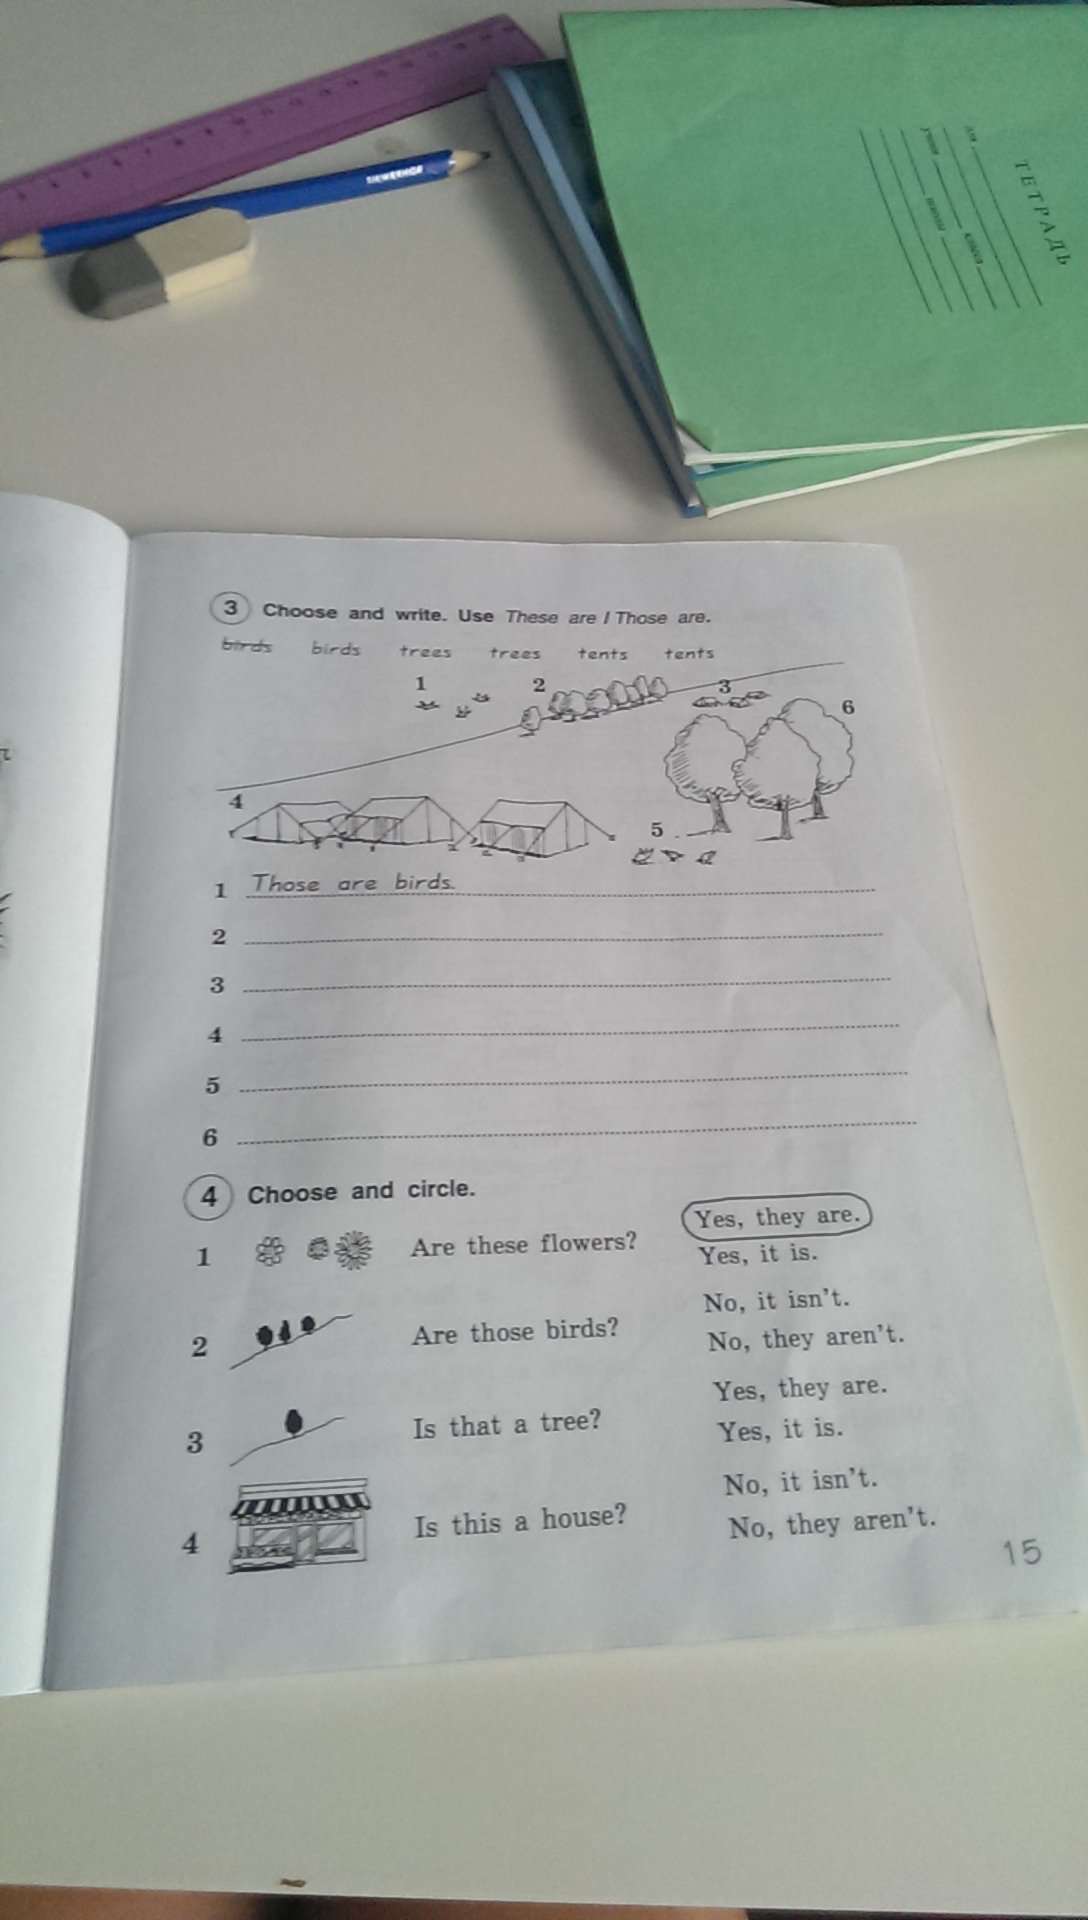 ТЕТРАДЬ
для
учени
класса
школы
3 Choose and write. Use These are / Those are.
birds birds trees trees tents tents
1 2 3
6
4
5
1 Those are birds.
2
3
4
5
6
4 Choose and circle.
1 Are these flowers? Yes, they are.
Yes, it is.
2 Are those birds? No, it isn't.
No, they aren't.
3 Is that a tree? Yes, they are.
Yes, it is.
4 Is this a house? No, it isn't.
No, they aren't.
15